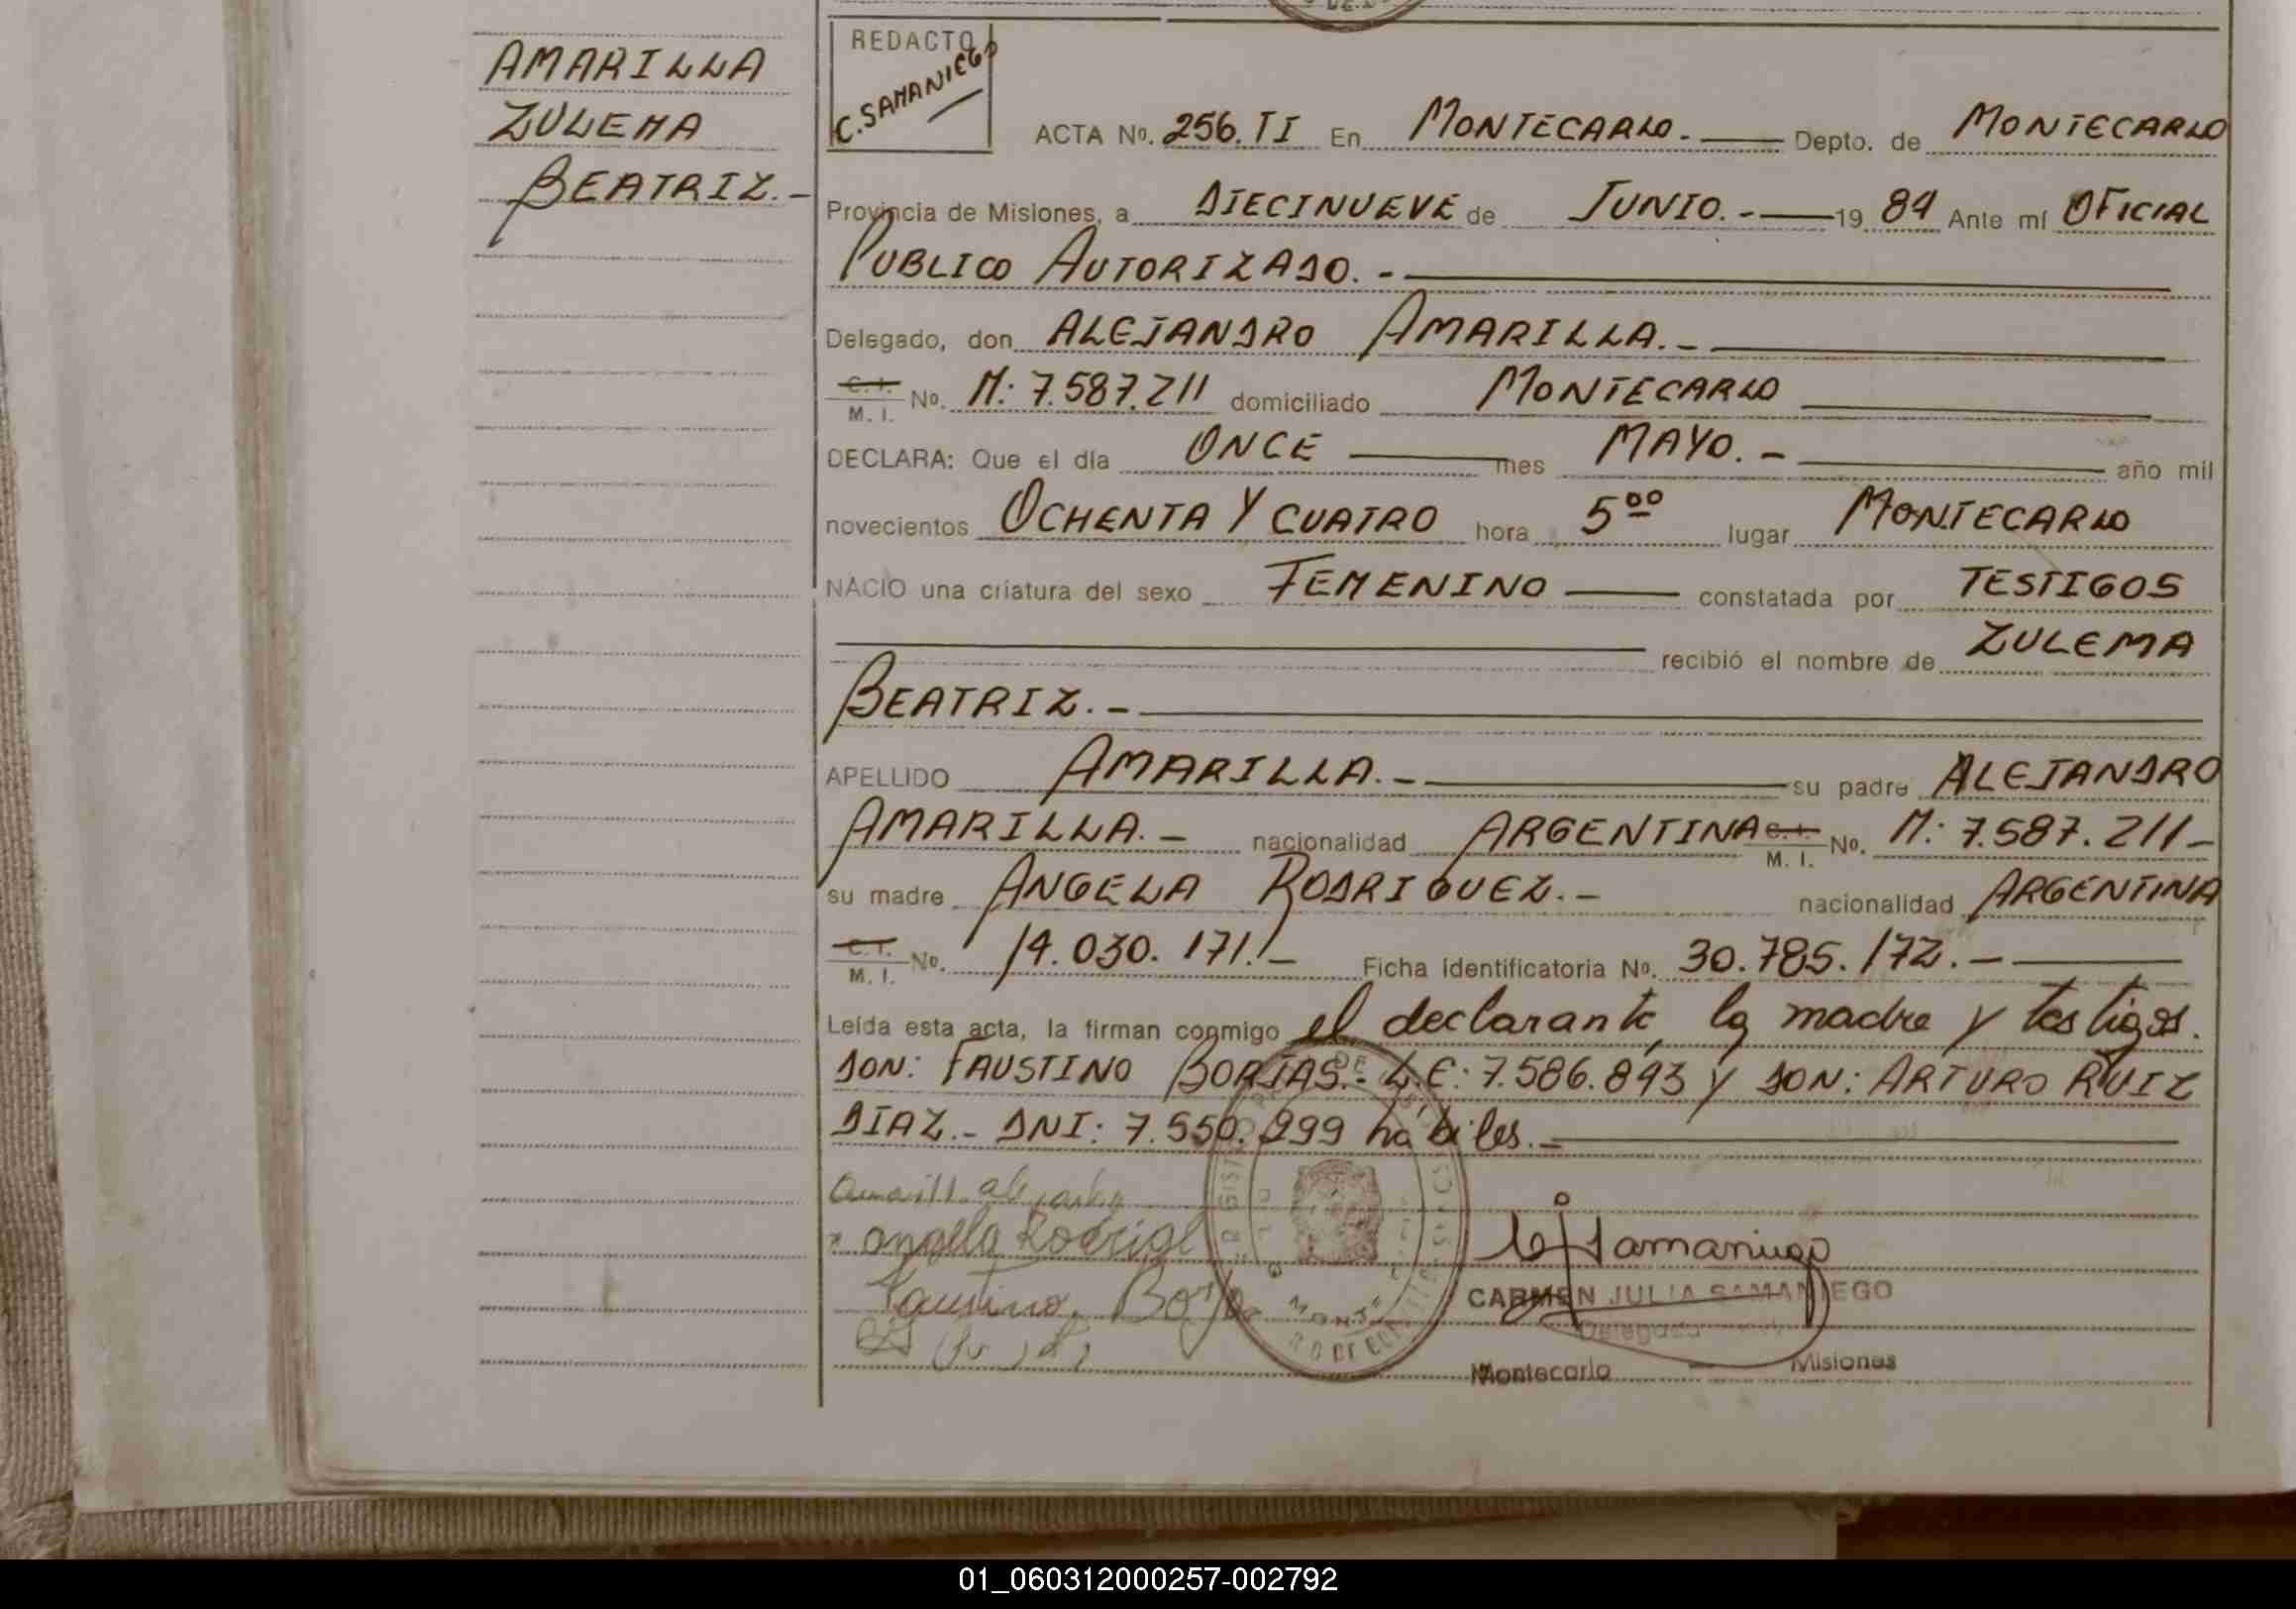 AMARILLA
ZULEMA
BEATRIZ.-
REDACTO
C. SAMANIEGO
ACTA No. 256. TI En MONTECARLO.- Depto. de MONTECARLO
Provincia de Misiones, a DIECINUEVE de JUNIO.- 19 84 Ante mí OFICIAL
PUBLICO AUTORIZADO.-
Delegado, don ALEJANDRO AMARILLA.-
C. I.
M. I. No. M: 7.587.211 domiciliado MONTECARLO
DECLARA: Que el día ONCE mes MAYO.- año mil
novecientos OCHENTA Y CUATRO hora 5⁰⁰ lugar MONTECARLO
NACIO una criatura del sexo FEMENINO constatada por TESTIGOS
recibió el nombre de ZULEMA
BEATRIZ.-
APELLIDO AMARILLA.- su padre ALEJANDRO
AMARILLA.- nacionalidad ARGENTINA C. I. M. I. No. M: 7.587.211-
su madre ANGELA RODRIGUEZ.- nacionalidad ARGENTINA
C. I.
M. I. No. 14.030.171.- Ficha identificatoria No. 30.785.172.-
Leída esta acta, la firman conmigo el declarante, la madre y testigos.
DON: FAUSTINO BORJAS.- L.E: 7.586.893 y DON: ARTURO RUIZ
DIAZ.- DNI: 7.550.299 hábiles.-
Angela Rodrige
Faustino Borja
Samaniego
CARMEN JULIA SAMANIEGO
Delegada
Montecarlo - Misiones
01_060312000257-002792